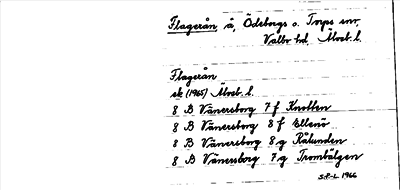 Flagerån å, Ödeborgs o. Torps snr,
Valbo hd, Älvsb. l.
Flagerån
ek (1965) Älvsb. l.
8 B Vänersborg 7 f Knotten
8 B Vänersborg 8 f Ellenö
8 B Vänersborg 8 g Rålunden
8 B Vänersborg 7 g Trombälgen
S.P-L. 1966